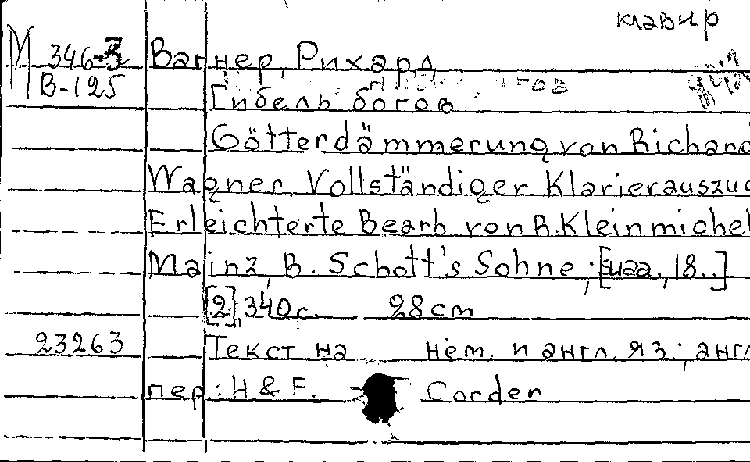 клавир
М 346-3 Вагнер, Рихард
В-125
Гибель богов.
Götterdämmerung von Richard
Wagner Vollständiger Klarierauszug
Erleichterte Bearb von R. Kleinmichel
Mainz, B. Schott's Sohne; [18..]
[2], 340с. 28cm
23263 Текст на нем. и англ. яз.; англ
пер: H & F. Corder